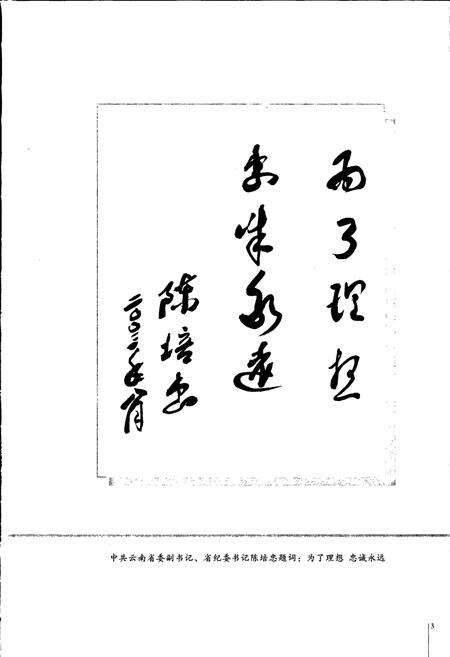 为了理想
忠诚永远
陈培忠
二〇〇三年八月
中共云南省委副书记、省纪委书记陈培忠题词：为了理想 忠诚永远
3